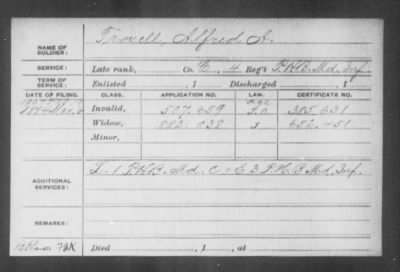 NAME OF SOLDIER: Troxell, Alfred A.
SERVICE: Late rank, Co. E, 4 Reg't P.H.B. Md. Inf.
TERM OF SERVICE: Enlisted , 1 Discharged , 1
DATE OF FILING. CLASS. APPLICATION NO. LAW. CERTIFICATE NO.
Invalid, 507.659 365.631
Widow, 882.038 652.451
Minor,
ADDITIONAL SERVICES: 1 P.H.B. Md. C - E 3 P.H.B. Md. Inf.
REMARKS:
Died , 1 , at